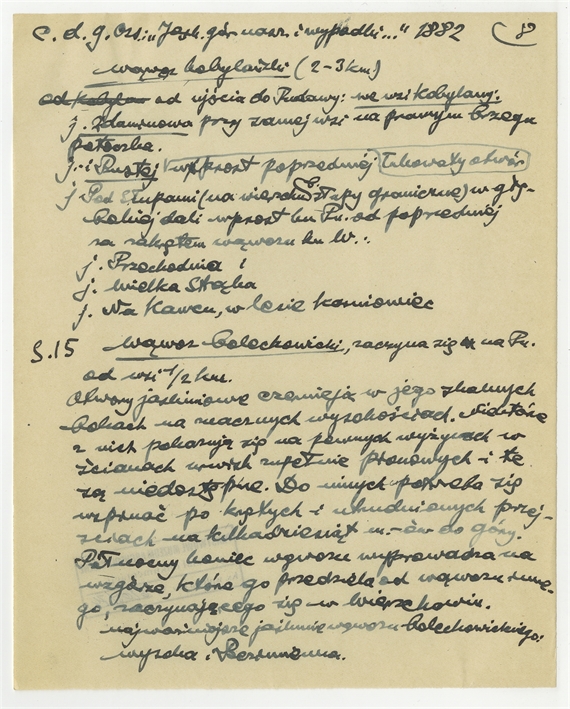 c. d. g. Oss. „Jask. gór nasz. i wypadki..." 1882
wąwoz kobylański (2-3 km)
od ujścia do Rudawy: we wsi Kobylany:
j. Zdaminowa przy samej wsi na prawym brzegu
potoczka.
j. i Pustej wprost poprzedniej łukowaty otwór
j Pod Słupami (na wierzchu słupy graniczne) w głę-
bokiej dali wprost ku Pn. od poprzedniej
za zakrętem wąwozu ku W.:
j. Przechodnia i
j. Wielka Strąka
j. Na Kawcu, w lesie kosmiowiec
S. 15 Wąwoz bolechowicki, zaczyna się na Pn.
od wsi 1/2 km.
Otwory jaskiniowe czernieją w jego skalnych
bokach na znacznych wysokościach. Niektóre
z nich pokazują się na pewnych wyżynach w
ścianach urwisk zupełnie pionowych i te
są niedostępne. Do innych potrzeba się
wspinać po krętych i utrudnionych przej-
ściach na kilkadziesiąt m.-ów do góry.
Północny koniec wąwozu wyprowadza na
wzgórze, które go przedziela od wąwozu inne-
go, zaczynającego się w Wierzchowiu.
najważniejsze jaskinie wąwozu bolechowickiego:
wysoka i Bezimienna.